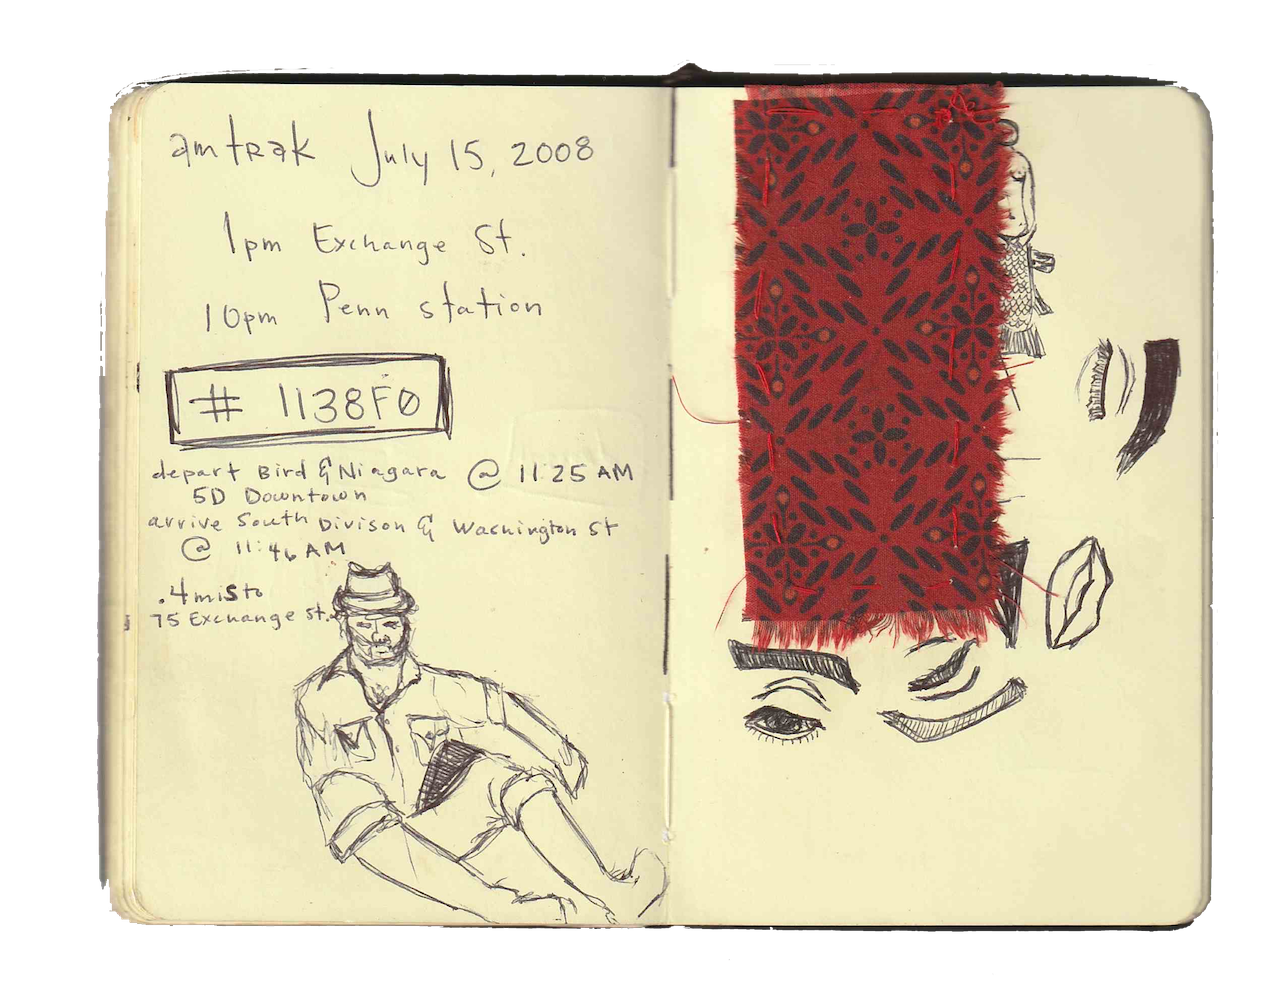 amtrak July 15, 2008
1pm Exchange St.
10pm Penn station
# 1138F0
depart Bird & Niagara @ 11:25 AM
5D Downtown
arrive South Divison & Washington St
@ 11:46 AM
.4 mis to
75 Exchange St.